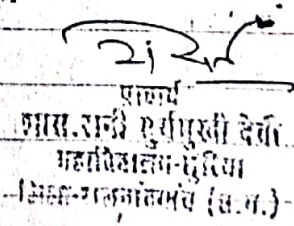 प्राचार्य
शास. रानी सूर्यमुखी देवी
महाविद्यालय-छुरिया
जिला-राजनांदगांव (छ.ग.)